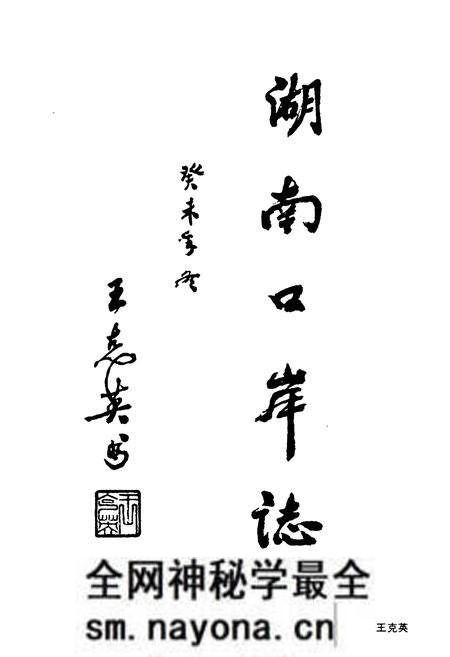 湖南口岸誌
癸未年冬
王克英书
全网神秘学最全
sm.nayona.cn
王克英